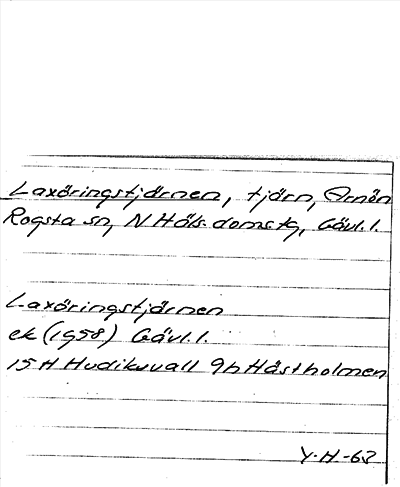 Laxöringstjärnen, tjärn, Arnön
Rogsta sn, N Häls. doms.tg, Gävl.l.
Laxöringstjärnen
ek (1958) Gävl.l.
15 H Hudiksvall 9h Hästholmen
Y.H-62